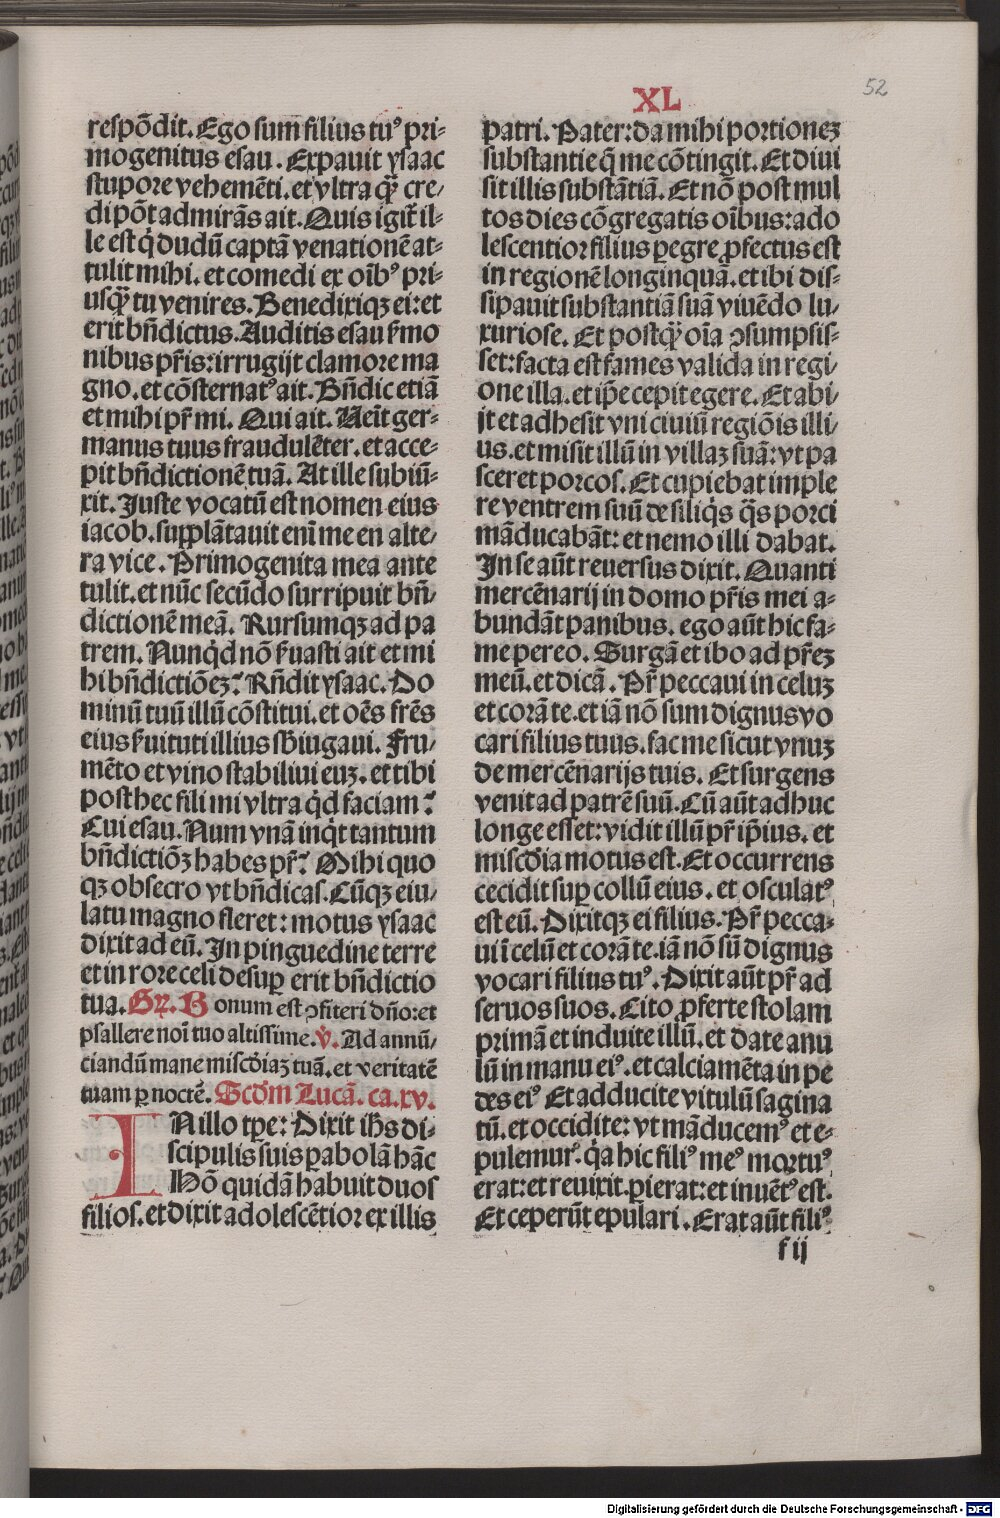 52
XL
respōdit. Ego sum filius tuꝰ pri⸗
mogenitus esau. Expauit ysaac
stupore vehemēti. et vltra qͣꝫ cre⸗
di pōt admirās ait. Quis igit̄ il⸗
le est qͥ dudū captā venationē at⸗
tulit mihi. et comedi ex oīb⁹ pri⸗
usqͣꝫ tu venires. Benedixiqꝫ ei: et
erit bn̄dictus. Auditis esau ẜmo
nibus pr̄is: irrugijt clamore ma
gno. et cōsternat⁹ ait. Bn̄dic etiā
et mihi pr̄ mi. Qui ait. Uēit ger⸗
manus tuus fraudulēter. et acce⸗
pit bn̄dictionē tuā. At ille subiū⸗
xit. Juste vocatū est nomen eius
iacob. supplātauit enī me en alte⸗
ra vice. Primogenita mea ante
tulit. et nūc secūdo surripuit bn̄⸗
dictionē meā. Rursumqꝫ ad pa
trem. Nunqͥd nō ẜuasti ait et mi
hi bn̄dictiōeꝫ? Rn̄dit ysaac. Do
minū tuū illū cōstitui. et oēs fr̄es
eius ẜuituti illius sb̄iugaui. Fru⸗
mēto et vino stabiliui euꝫ. et tibi
post hec fili mi vltra qͥd faciam?
Cui esau. Num vnā inqͥt tantum
bn̄dictiōꝫ habes pr̄? Mihi quo
qꝫ obsecro vt bn̄dicas. Cūqꝫ eiu⸗
latu magno fleret: motus ysaac
dixit ad eū. In pinguedine terre
et in rore celi desuꝑ erit bn̄dictio
tua. Gꝝ. Bonum est ꝯfiteri dn̄o: et
psallere noī tuo altissime. v̄. Ad annū⸗
ciandū mane misc̄diaꝫ tuā. et veritatē
tuam ꝑ noctē. Scd̄m Lucā. ca. xv.
IN illo tp̄e: Dixit ih̄s di⸗
scipulis suis ꝑabolā hāc
Hō quidā habuit duos
filios. et dixit adolescētior ex illis
patri. Pater: da mihi portioneꝫ
substantie q̄ me cōtingit. Et diui
sit illis substātiā. Et nō post mul
tos dies cōgregatis oībus: ado
lescentior filius ꝑegre ꝓfectus est
in regionē longinquā. et ibi dis⸗
sipauit substantiā suā viuēdo lu⸗
xuriose. Et postqͣꝫ oīa ꝯsumpsis⸗
set: facta est fames valida in regi⸗
one illa. et ip̄e cepit egere. Et abi⸗
jt et adhesit vni ciuiū regiōis illi⸗
us. et misit illū in villaꝫ suā: vt pa
sceret porcos. Et cupiebat imple
re ventrem suū de siliqͥs qͣs porci
māducabāt: et nemo illi dabat.
In se aūt reuersus dixit. Quanti
mercēnarij in domo pr̄is mei a⸗
bundāt panibus. ego aūt hic fa⸗
me pereo. Surgā et ibo ad pr̄eꝫ
meū. et dicā. Pr̄ peccaui in celuꝫ
et corā te. et iā nō sum dignus vo
cari filius tuus. fac me sicut vnuꝫ
de mercēnarijs tuis. Et surgens
venit ad patrē suū. Cū aūt adhuc
longe esset: vidit illū pr̄ ip̄ius. et
misc̄dia motus est. Et occurrens
cecidit suꝑ collū eius. et osculat⁹
est eū. Dixitqꝫ ei filius. Pr̄ pecca⸗
ui ī celū et corā te. iā nō sū dignus
vocari filius tuꝰ. Dixit aūt pr̄ ad
seruos suos. Cito ꝓferte stolam
primā et induite illū. et date anu
lū in manu eiꝰ. et calciamēta in pe
des eiꝰ Et adducite vitulū sagina
tū. et occidite: vt māducemꝰ et e⸗
pulemurꝰ. qͥa hic filiꝰ meꝰ mortuꝰ
erat: et reuixit. ꝑierat: et inuētꝰ est.
Et ceperūt epulari. Erat aūt filiꝰ
f ij
Digitalisierung gefördert durch die Deutsche Forschungsgemeinschaft - DFG